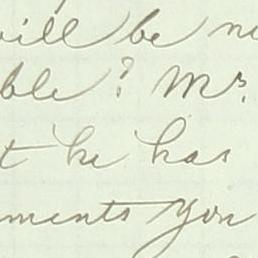 will be
ble? Mr.
t he has
ments you